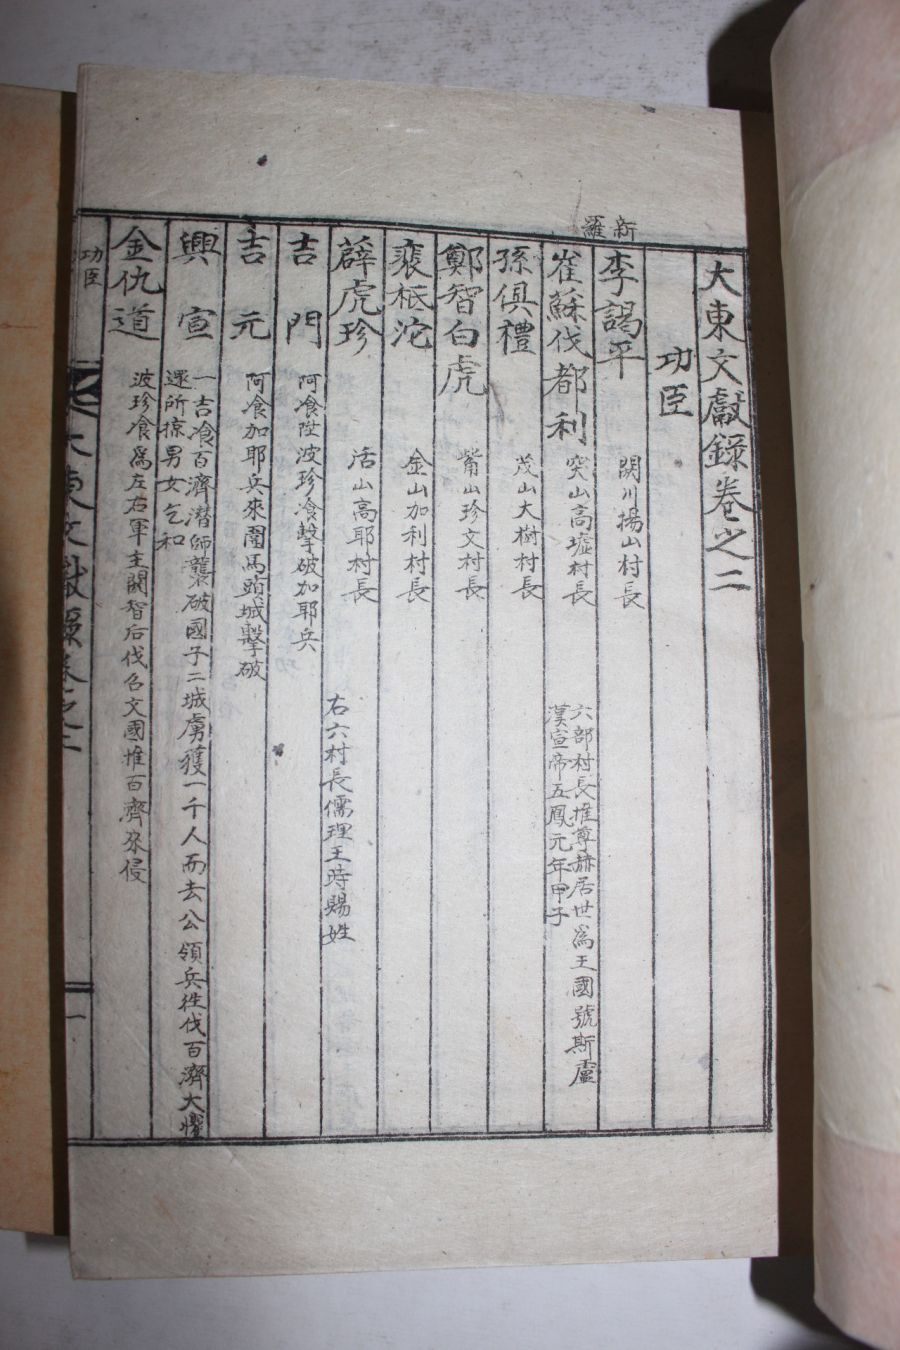 大東文獻錄卷之二
功臣
新羅
李謁平 閼川揚山村長
崔蘇伐都利 突山高墟村長 六部村長推尊赫居世爲王國號斯盧
漢宣帝五鳳元年甲子
孫俱禮 茂山大樹村長
鄭智白虎 觜山珍文村長
裵秪沱 金山加利村長
薛虎珍 活山高耶村長
右六村長儒理王時賜姓
吉門 阿飡陞波珍飡擊破加耶兵
吉元 阿飡加耶兵來圍馬頭城擊破
興宣 一吉飡百濟潛師襲破國子二城虜獲一千人而去公領兵徃伐百濟大懼
還所掠男女乞和
金仇道 波珍飡爲左右軍主閼智后伐召文國推百濟來侵
功臣
大東文獻錄卷之二
一